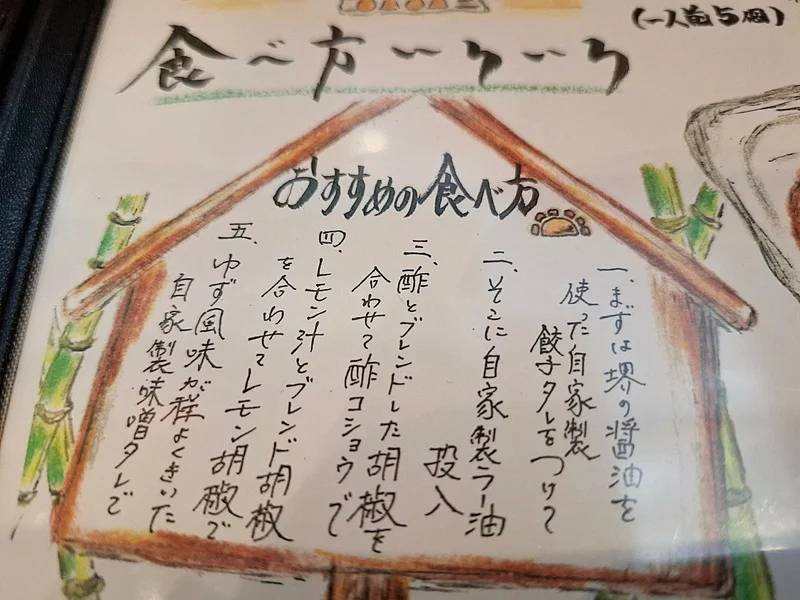 (一人前5個)
食べ方いろいろ
おすすめの食べ方
一、まずは堺の醤油を
使った自家製
餃子タレをつけて
二、そこに自家製ラー油
投入
三、酢とブレンドした胡椒を
合わせて酢コショウで
四、レモン汁とブレンド胡椒
を合わせてレモン胡椒で
五、ゆず風味が程よくきいた
自家製味噌タレで